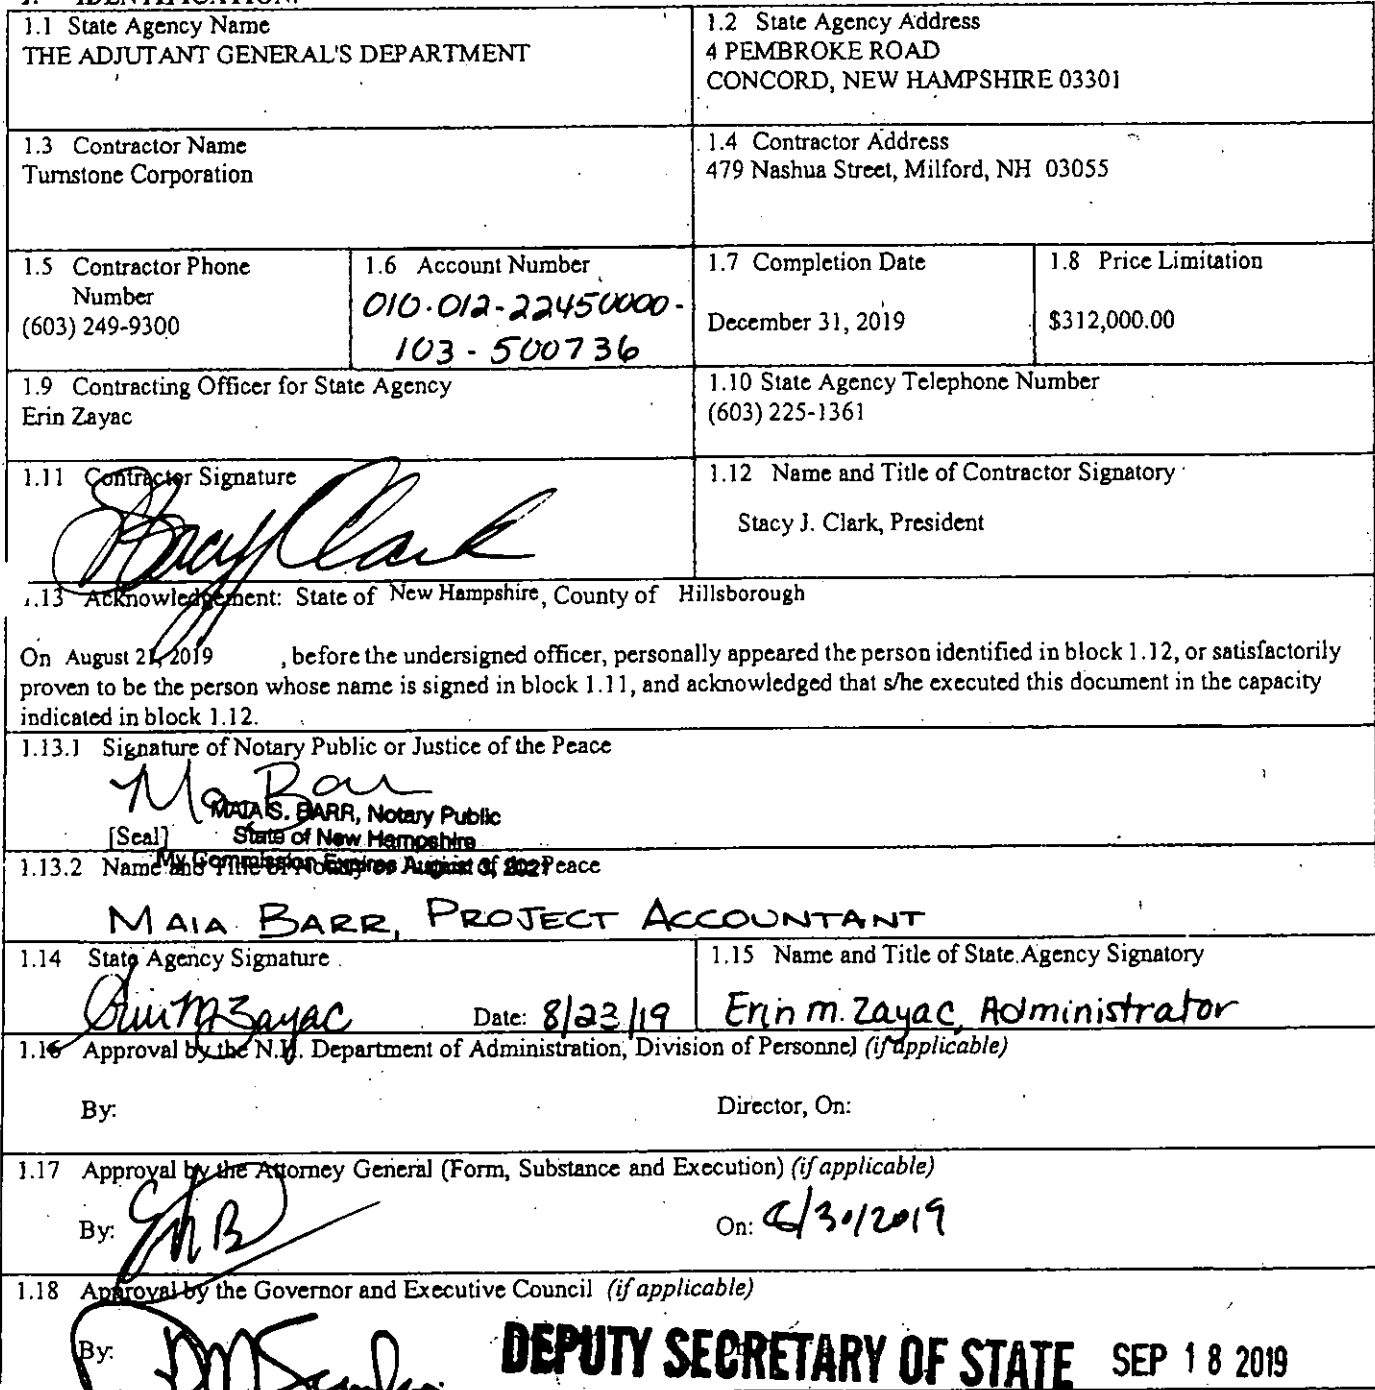 1. IDENTIFICATION.
1.1 State Agency Name
THE ADJUTANT GENERAL'S DEPARTMENT
1.2 State Agency Address
4 PEMBROKE ROAD
CONCORD, NEW HAMPSHIRE 03301
1.3 Contractor Name
Turnstone Corporation
1.4 Contractor Address
479 Nashua Street, Milford, NH 03055
1.5 Contractor Phone
Number
(603) 249-9300
1.6 Account Number
010-012-22450000-
103-500736
1.7 Completion Date
December 31, 2019
1.8 Price Limitation
$312,000.00
1.9 Contracting Officer for State Agency
Erin Zayac
1.10 State Agency Telephone Number
(603) 225-1361
1.11 Contractor Signature
Stacy J Clark
1.12 Name and Title of Contractor Signatory
Stacy J. Clark, President
1.13 Acknowledgement: State of New Hampshire, County of Hillsborough
On August 21, 2019 , before the undersigned officer, personally appeared the person identified in block 1.12, or satisfactorily
proven to be the person whose name is signed in block 1.11, and acknowledged that s/he executed this document in the capacity
indicated in block 1.12.
1.13.1 Signature of Notary Public or Justice of the Peace
MAIA S. BARR, Notary Public
[Seal] State of New Hampshire
My Commission Expires August 3, 2021
1.13.2 Name and Title of Notary or Justice of the Peace
MAIA BARR, PROJECT ACCOUNTANT
1.14 State Agency Signature
Erin M Zayac Date: 8/23/19
1.15 Name and Title of State Agency Signatory
Erin M. Zayac, Administrator
1.16 Approval by the N.H. Department of Administration, Division of Personnel (if applicable)
By: Director, On:
1.17 Approval by the Attorney General (Form, Substance and Execution) (if applicable)
By: On: /30/2019
1.18 Approval by the Governor and Executive Council (if applicable)
By: DEPUTY SECRETARY OF STATE SEP 18 2019